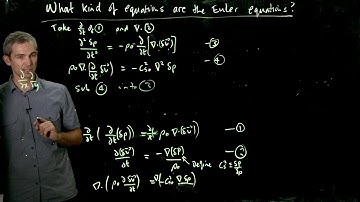 What kind of equations are the Euler equations?
Take ∂/∂t of ① and ∇·②
∂²δρ/∂t² = -ρ₀ ∂/∂t [∇·(δū)] — ③
ρ₀∇·(∂δū/∂t) = -C²s₀ ∇²δρ — ④
sub ④ into ③
∂/∂t (∂(δρ)/∂t) = ρ₀ ∇·(δū)) — ①
∂(δū)/∂t = -∇(δp)/ρ₀ — ②
Define C²s = δp/δρ
∇·(ρ₀ ∂δū/∂t) = ∇·(-C²s₀ ∇δρ)